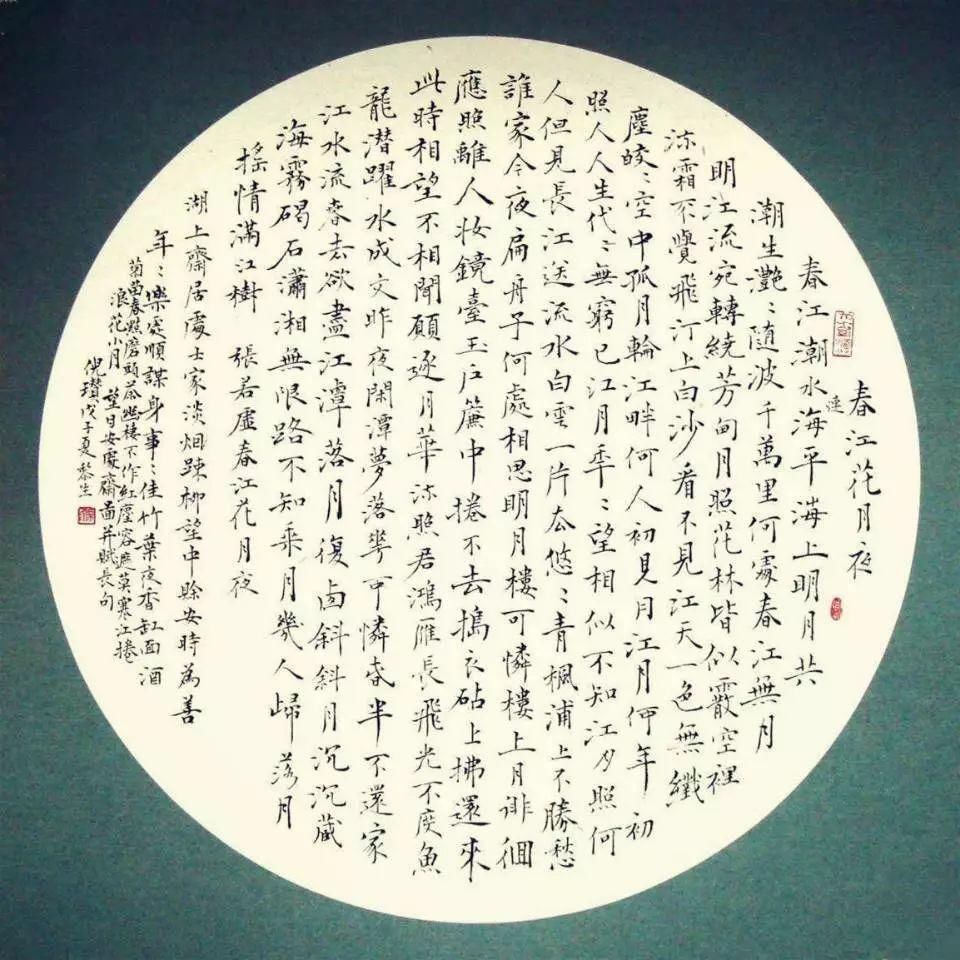 春江花月夜
春江潮水海平海上明月共
連
潮生灧〻随波千萬里何處春江無月
明江流宛轉繞芳甸月照花林皆似霰空裡
流霜不覺飛汀上白沙看不見江天一色無纖
塵皎〻空中孤月輪江畔何人初見月江月何年初
照人人生代〻無窮已江月年〻望相似不知江月照何
人但見長江送流水白雲一片去悠〻青楓浦上不勝愁
誰家今夜扁舟子何處相思明月樓可憐樓上月徘徊
應照離人妝鏡臺玉户簾中捲不去搗衣砧上拂還來
此時相望不相聞願逐月華流照君鴻雁長飛光不度魚
龍潜躍水成文昨夜閑潭夢落花可憐春半不還家
江水流春去欲盡江潭落月復西斜斜月沉沉藏
海霧碣石瀟湘無限路不知乘月幾人歸 落月
摇情滿江樹 張若虛春江花月夜
湖上齋居處士家淡烟踈柳望中賒安時為善
年〻樂處順謀身事〻佳竹葉夜香缸面酒
菊苗春點磨頭茶幽棲不作紅塵容遮莫寒江捲
浪花小月 望日安處齋圖并賦長句
倪瓚戊子夏黎生